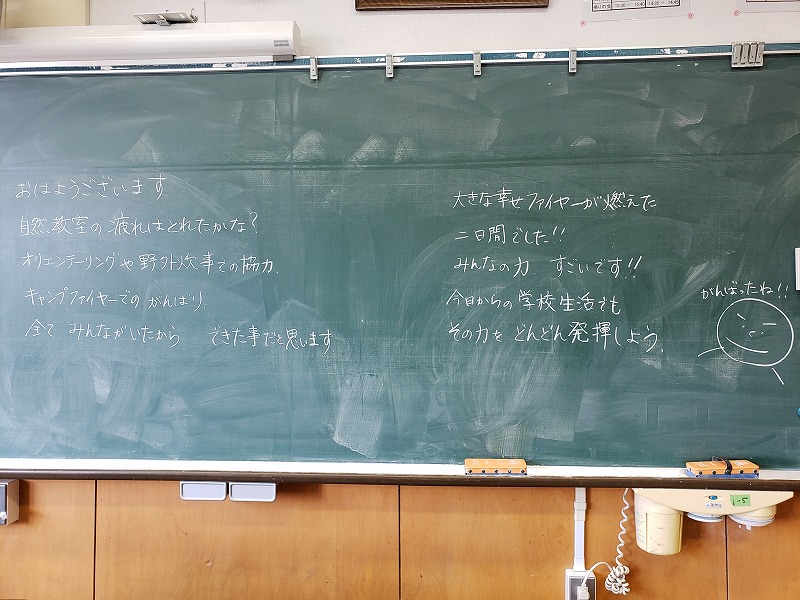 おはようございます
自然教室の疲れはとれたかな?
オリエンテーリングや野外炊事での協力、
キャンプファイヤーでのがんばり、
全て みんながいたから できた事だと思います
大きな幸せファイヤーが燃えた
二日間でした!!
みんなの力 すごいです!!
今日からの学校生活でも
その力を どんどん発揮しよう。
がんばったね!!
1-5